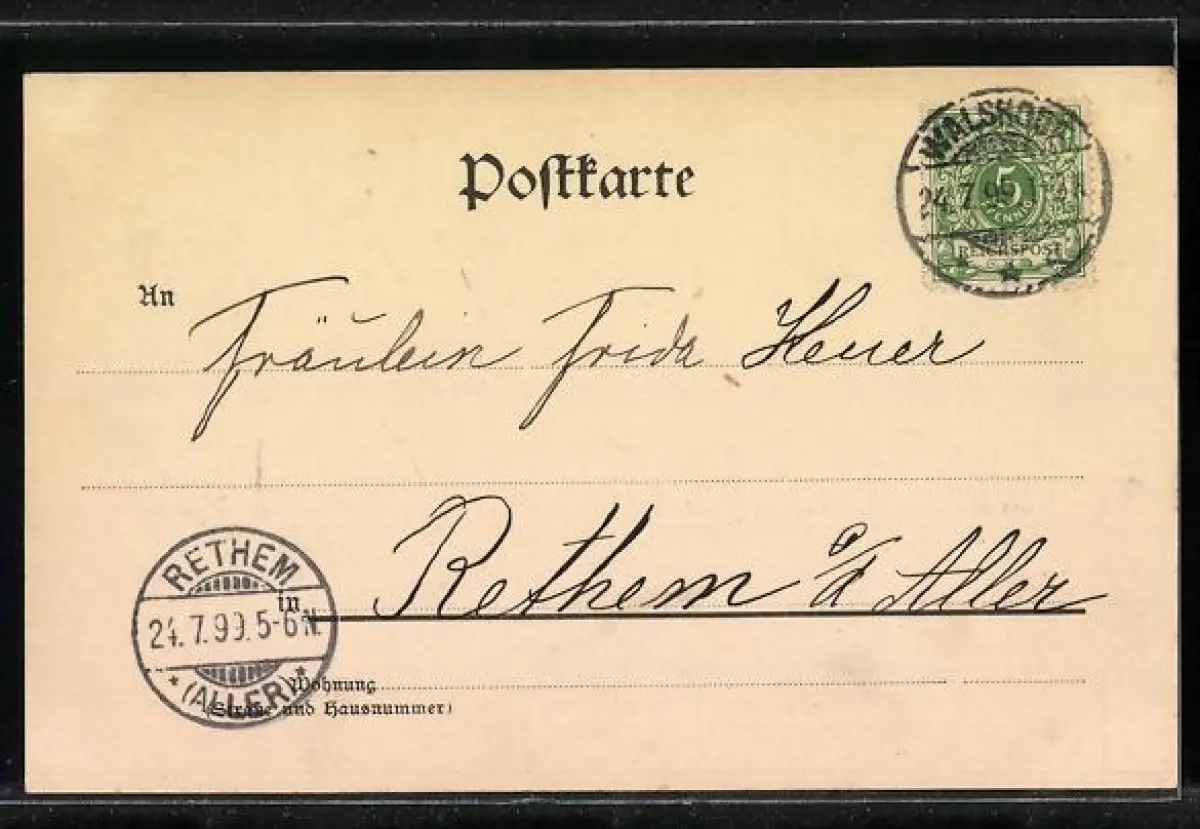 Postkarte
WALSRODE
24.7.99
5
PFENNIG
REICHSPOST
An
Fräulein Frida Heuer
Rethem a/d Aller
in
RETHEM
24.7.99.5-6N.
(ALLER)
Wohnung
(Straße und Hausnummer)